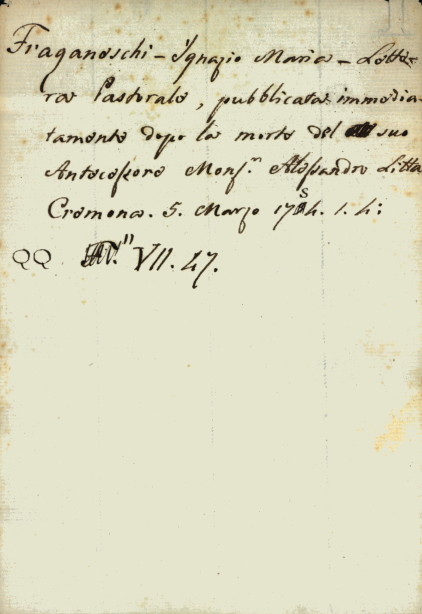 Fraganeschi - Ignazio Maria - Lette-
ra Pastorale, pubblicata immedia-
tamente dopo la morte del suo
Antecessore Monsr. Alessandro Litta
Cremona. 5. Marzo 1754. 1. 4:
QQ VII. 47.